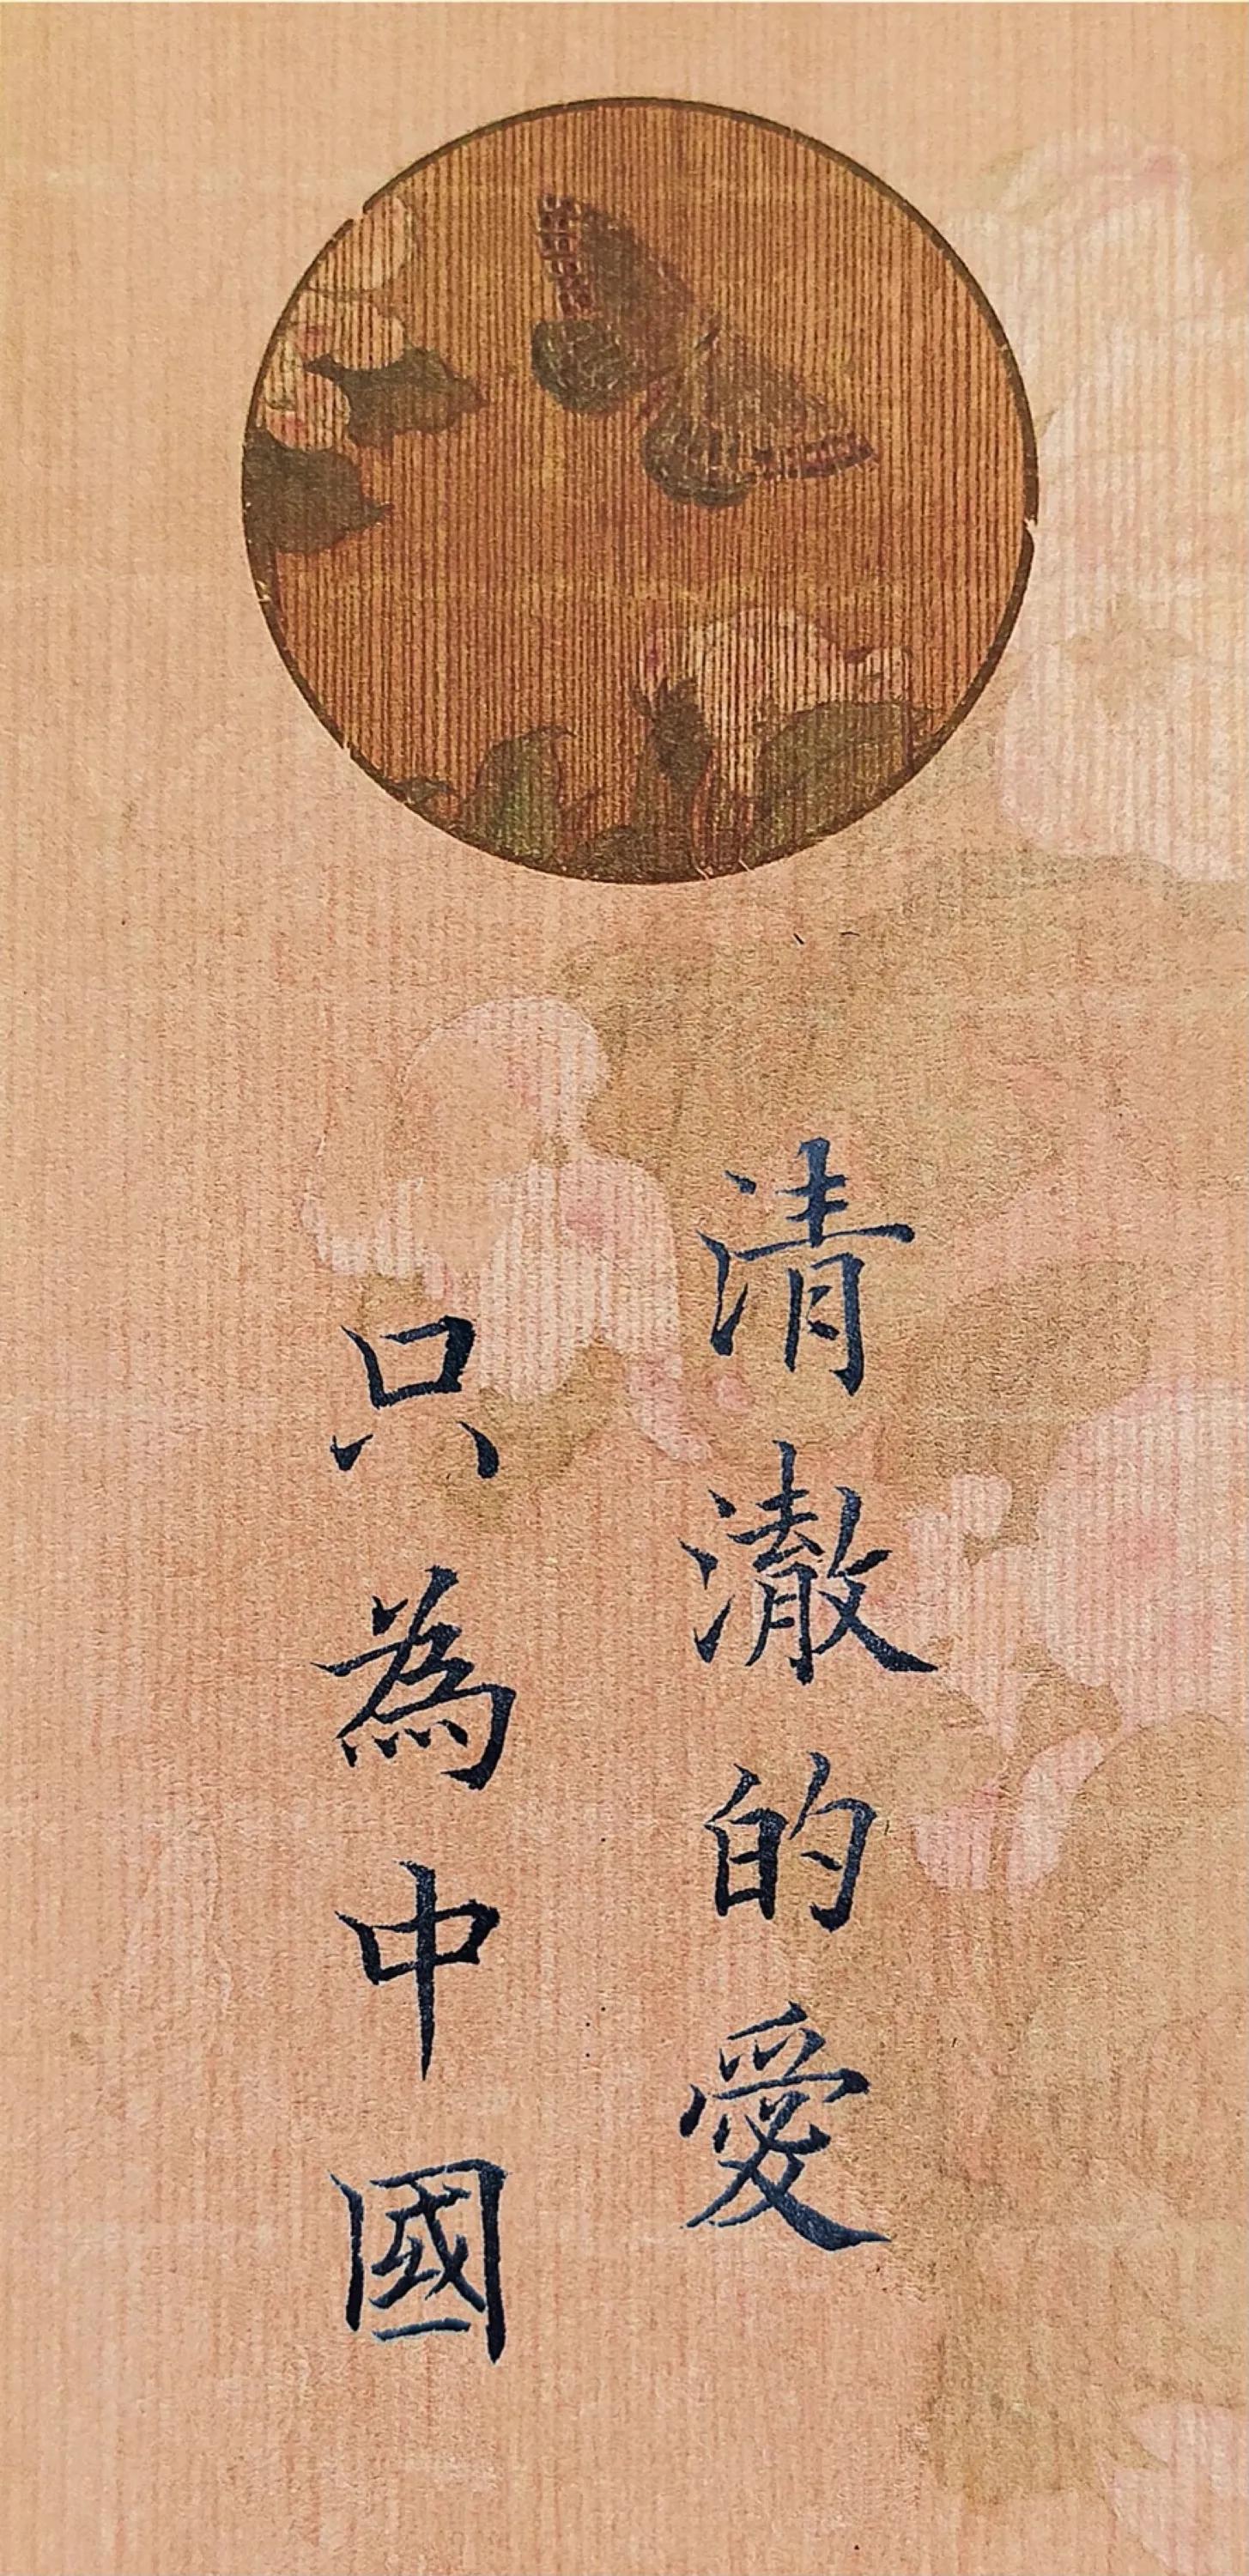 清澈的愛
只為中國